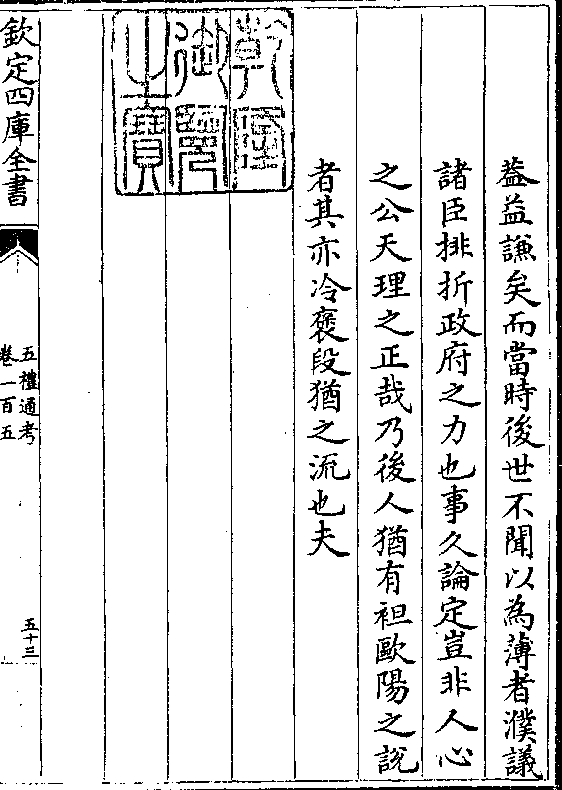 葢益謙矣而當時後世不聞以為薄者濮議
諸臣排折政府之力也事久論定豈非人心
之公天理之正哉乃後人猶有袒歐陽之說
者其亦冷褒段猶之流也夫
乾隆
御覽
之寶
欽定四庫全書
五禮通考
卷一百五
五十三